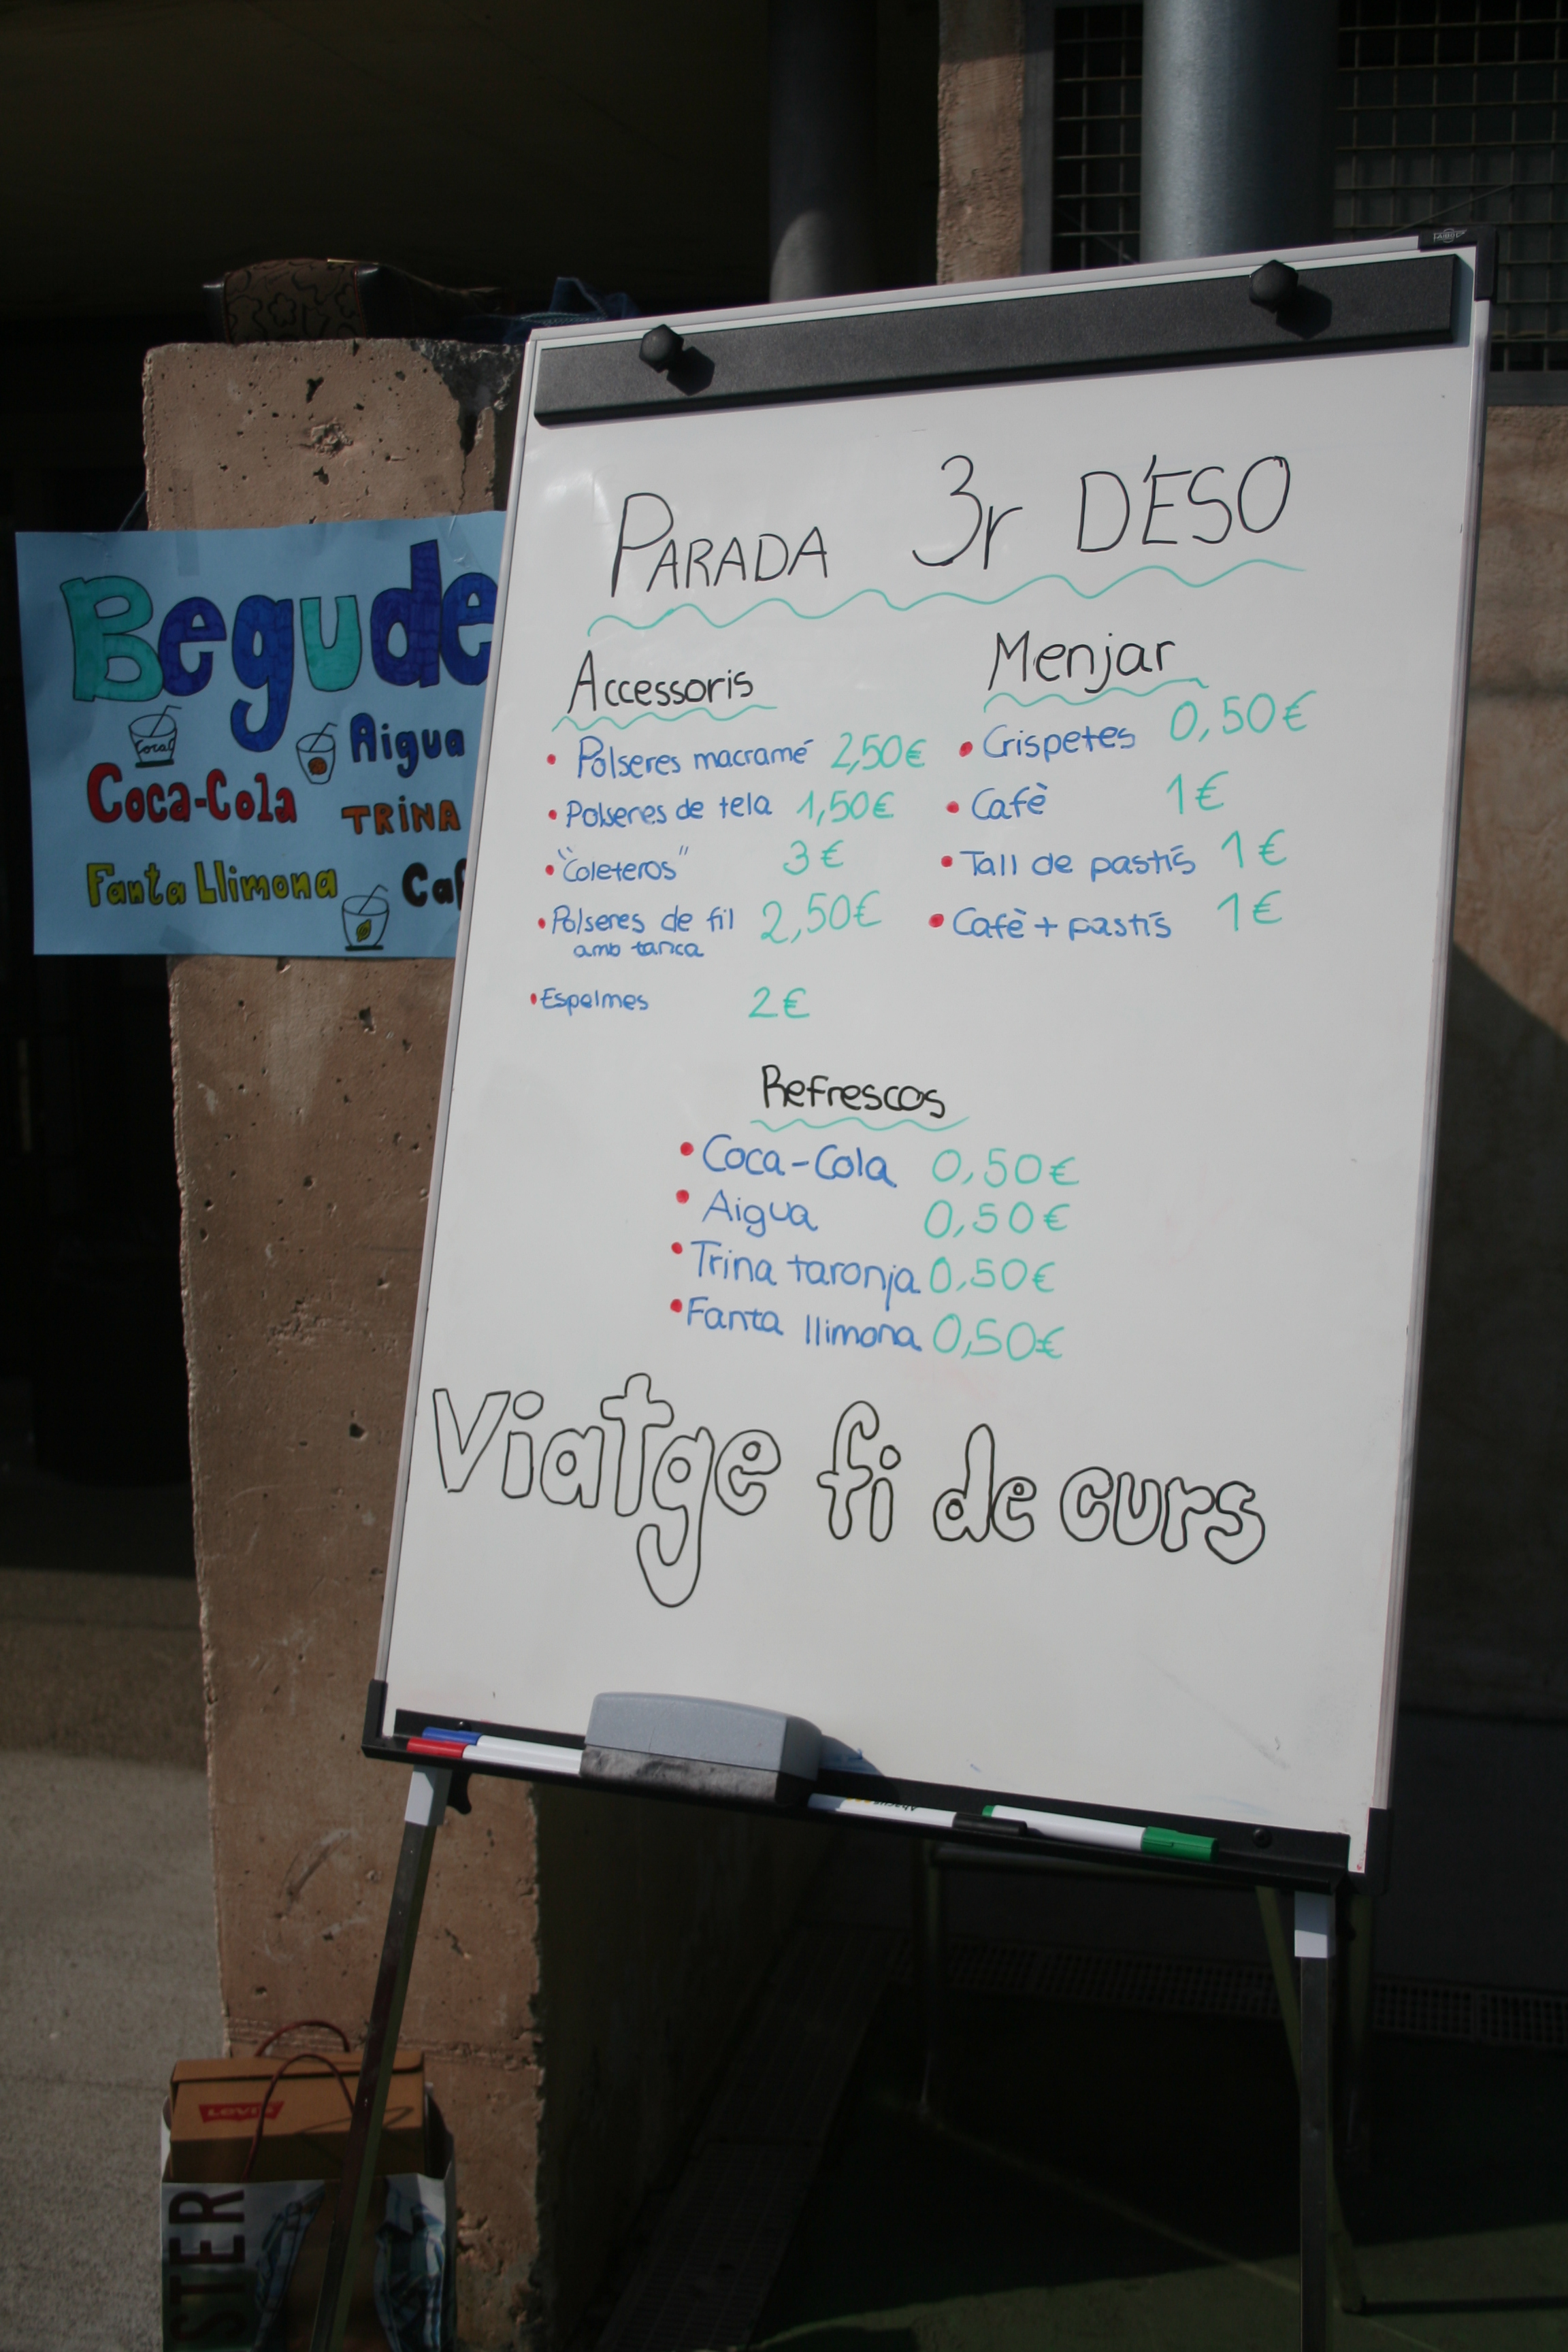 Begude
Aigua
Coca-Cola
TRINA
Fanta Llimona
Coca
PARADA 3r D'ESO
Accessoris
• Polseres macramé 2,50€
• Polseres de tela 1,50€
• "Coleteros" 3€
• Polseres de fil 2,50€
amb tanca
• Espelmes 2€
Menjar
• Crispetes 0,50€
• Cafè 1€
• Tall de pastís 1€
• Cafè + pastís 1€
Refrescos
• Coca-Cola 0,50€
• Aigua 0,50€
• Trina taronja 0,50€
• Fanta llimona 0,50€
Viatge fi de curs
LEVI'S
STER